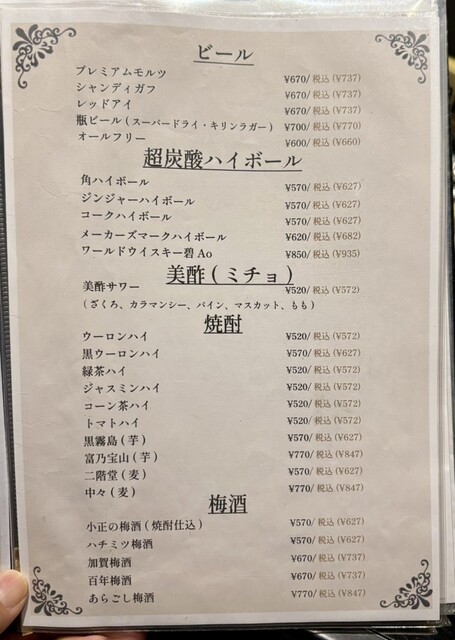 ビール
プレミアムモルツ ¥670/ 税込 (¥737)
シャンディガフ ¥670/ 税込 (¥737)
レッドアイ ¥670/ 税込 (¥737)
瓶ビール ( スーパードライ・キリンラガー ) ¥700/ 税込 (¥770)
オールフリー ¥600/ 税込 (¥660)
超炭酸ハイボール
角ハイボール ¥570/ 税込 (¥627)
ジンジャーハイボール ¥570/ 税込 (¥627)
コークハイボール ¥570/ 税込 (¥627)
メーカーズマークハイボール ¥620/ 税込 (¥682)
ワールドウイスキー碧 Ao ¥850/ 税込 (¥935)
美酢 ( ミチョ )
美酢サワー ¥520/ 税込 (¥572)
( ざくろ、カラマンシー、パイン、マスカット、もも )
焼酎
ウーロンハイ ¥520/ 税込 (¥572)
黒ウーロンハイ ¥570/ 税込 (¥627)
緑茶ハイ ¥520/ 税込 (¥572)
ジャスミンハイ ¥520/ 税込 (¥572)
コーン茶ハイ ¥520/ 税込 (¥572)
トマトハイ ¥520/ 税込 (¥572)
黒霧島 ( 芋 ) ¥570/ 税込 (¥627)
富乃宝山 ( 芋 ) ¥770/ 税込 (¥847)
二階堂 ( 麦 ) ¥570/ 税込 (¥627)
中々 ( 麦 ) ¥770/ 税込 (¥847)
梅酒
小正の梅酒 ( 焼酎仕込 ) ¥570/ 税込 (¥627)
ハチミツ梅酒 ¥570/ 税込 (¥627)
加賀梅酒 ¥670/ 税込 (¥737)
百年梅酒 ¥670/ 税込 (¥737)
あらごし梅酒 ¥770/ 税込 (¥847)